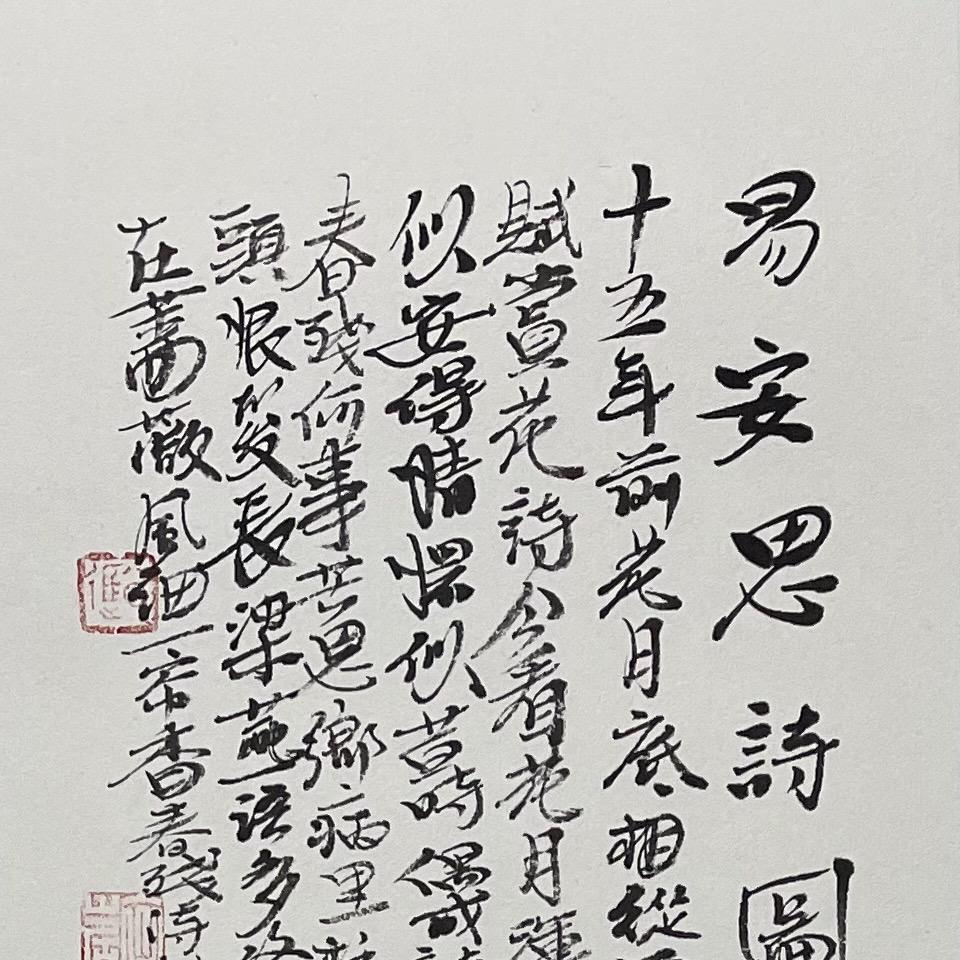 易安思詩圖
十五年前花月底相從
賦賞花詩今看花月渾
似安得情懷似昔時偶成詩
春殘何事苦思鄉病里梳
頭恨髮長梁燕語多終
在薔薇風細一帘香春殘詩